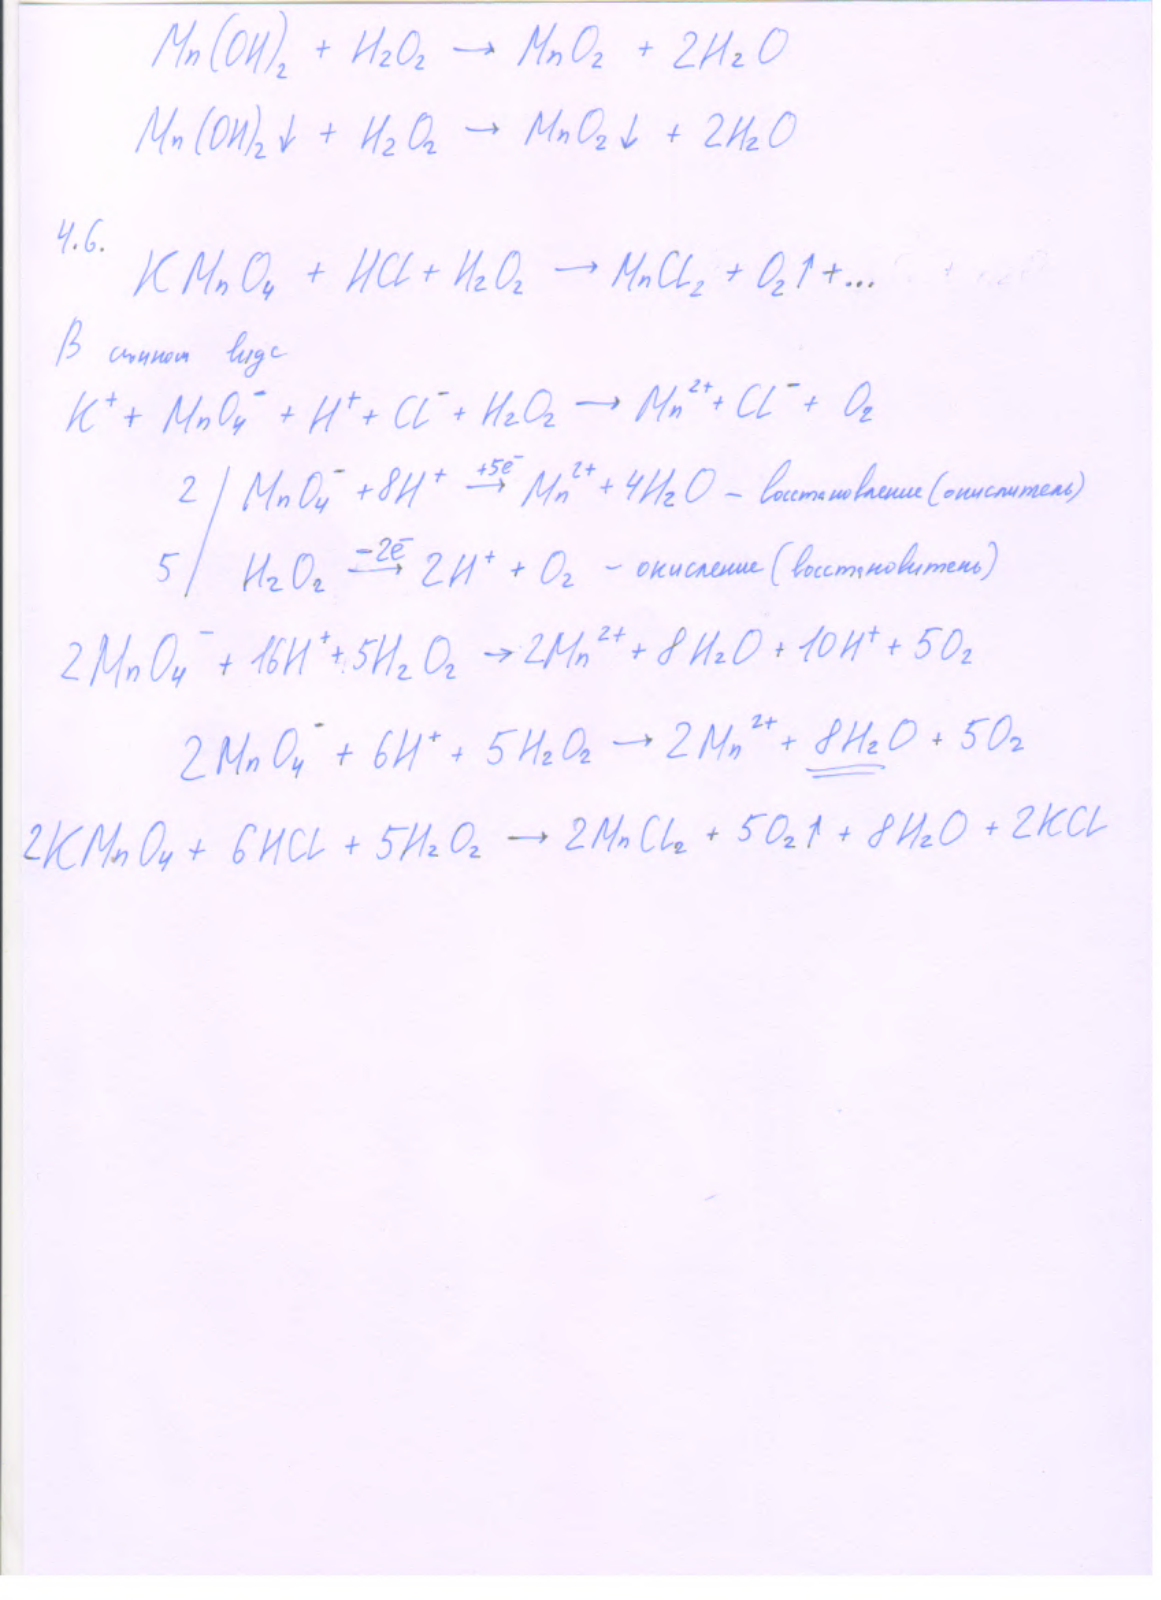 Mn(OH)₂ + H₂O₂ → MnO₂ + 2H₂O
Mn(OH)₂↓ + H₂O₂ → MnO₂↓ + 2H₂O
4.6.
KMnO₄ + HCl + H₂O₂ → MnCl₂ + O₂↑ + ...
В ионном виде
K⁺ + MnO₄⁻ + H⁺ + Cl⁻ + H₂O₂ → Mn²⁺ + Cl⁻ + O₂
2 | MnO₄⁻ + 8H⁺ +5e⁻→ Mn²⁺ + 4H₂O – восстановление (окислитель)
5 | H₂O₂ −2e⁻→ 2H⁺ + O₂ – окисление (восстановитель)
2MnO₄⁻ + 16H⁺ + 5H₂O₂ → 2Mn²⁺ + 8H₂O + 10H⁺ + 5O₂
2MnO₄⁻ + 6H⁺ + 5H₂O₂ → 2Mn²⁺ + 8H₂O + 5O₂
2KMnO₄ + 6HCl + 5H₂O₂ → 2MnCl₂ + 5O₂↑ + 8H₂O + 2KCl